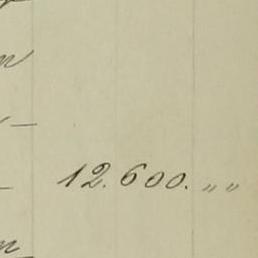 12.600. „ „